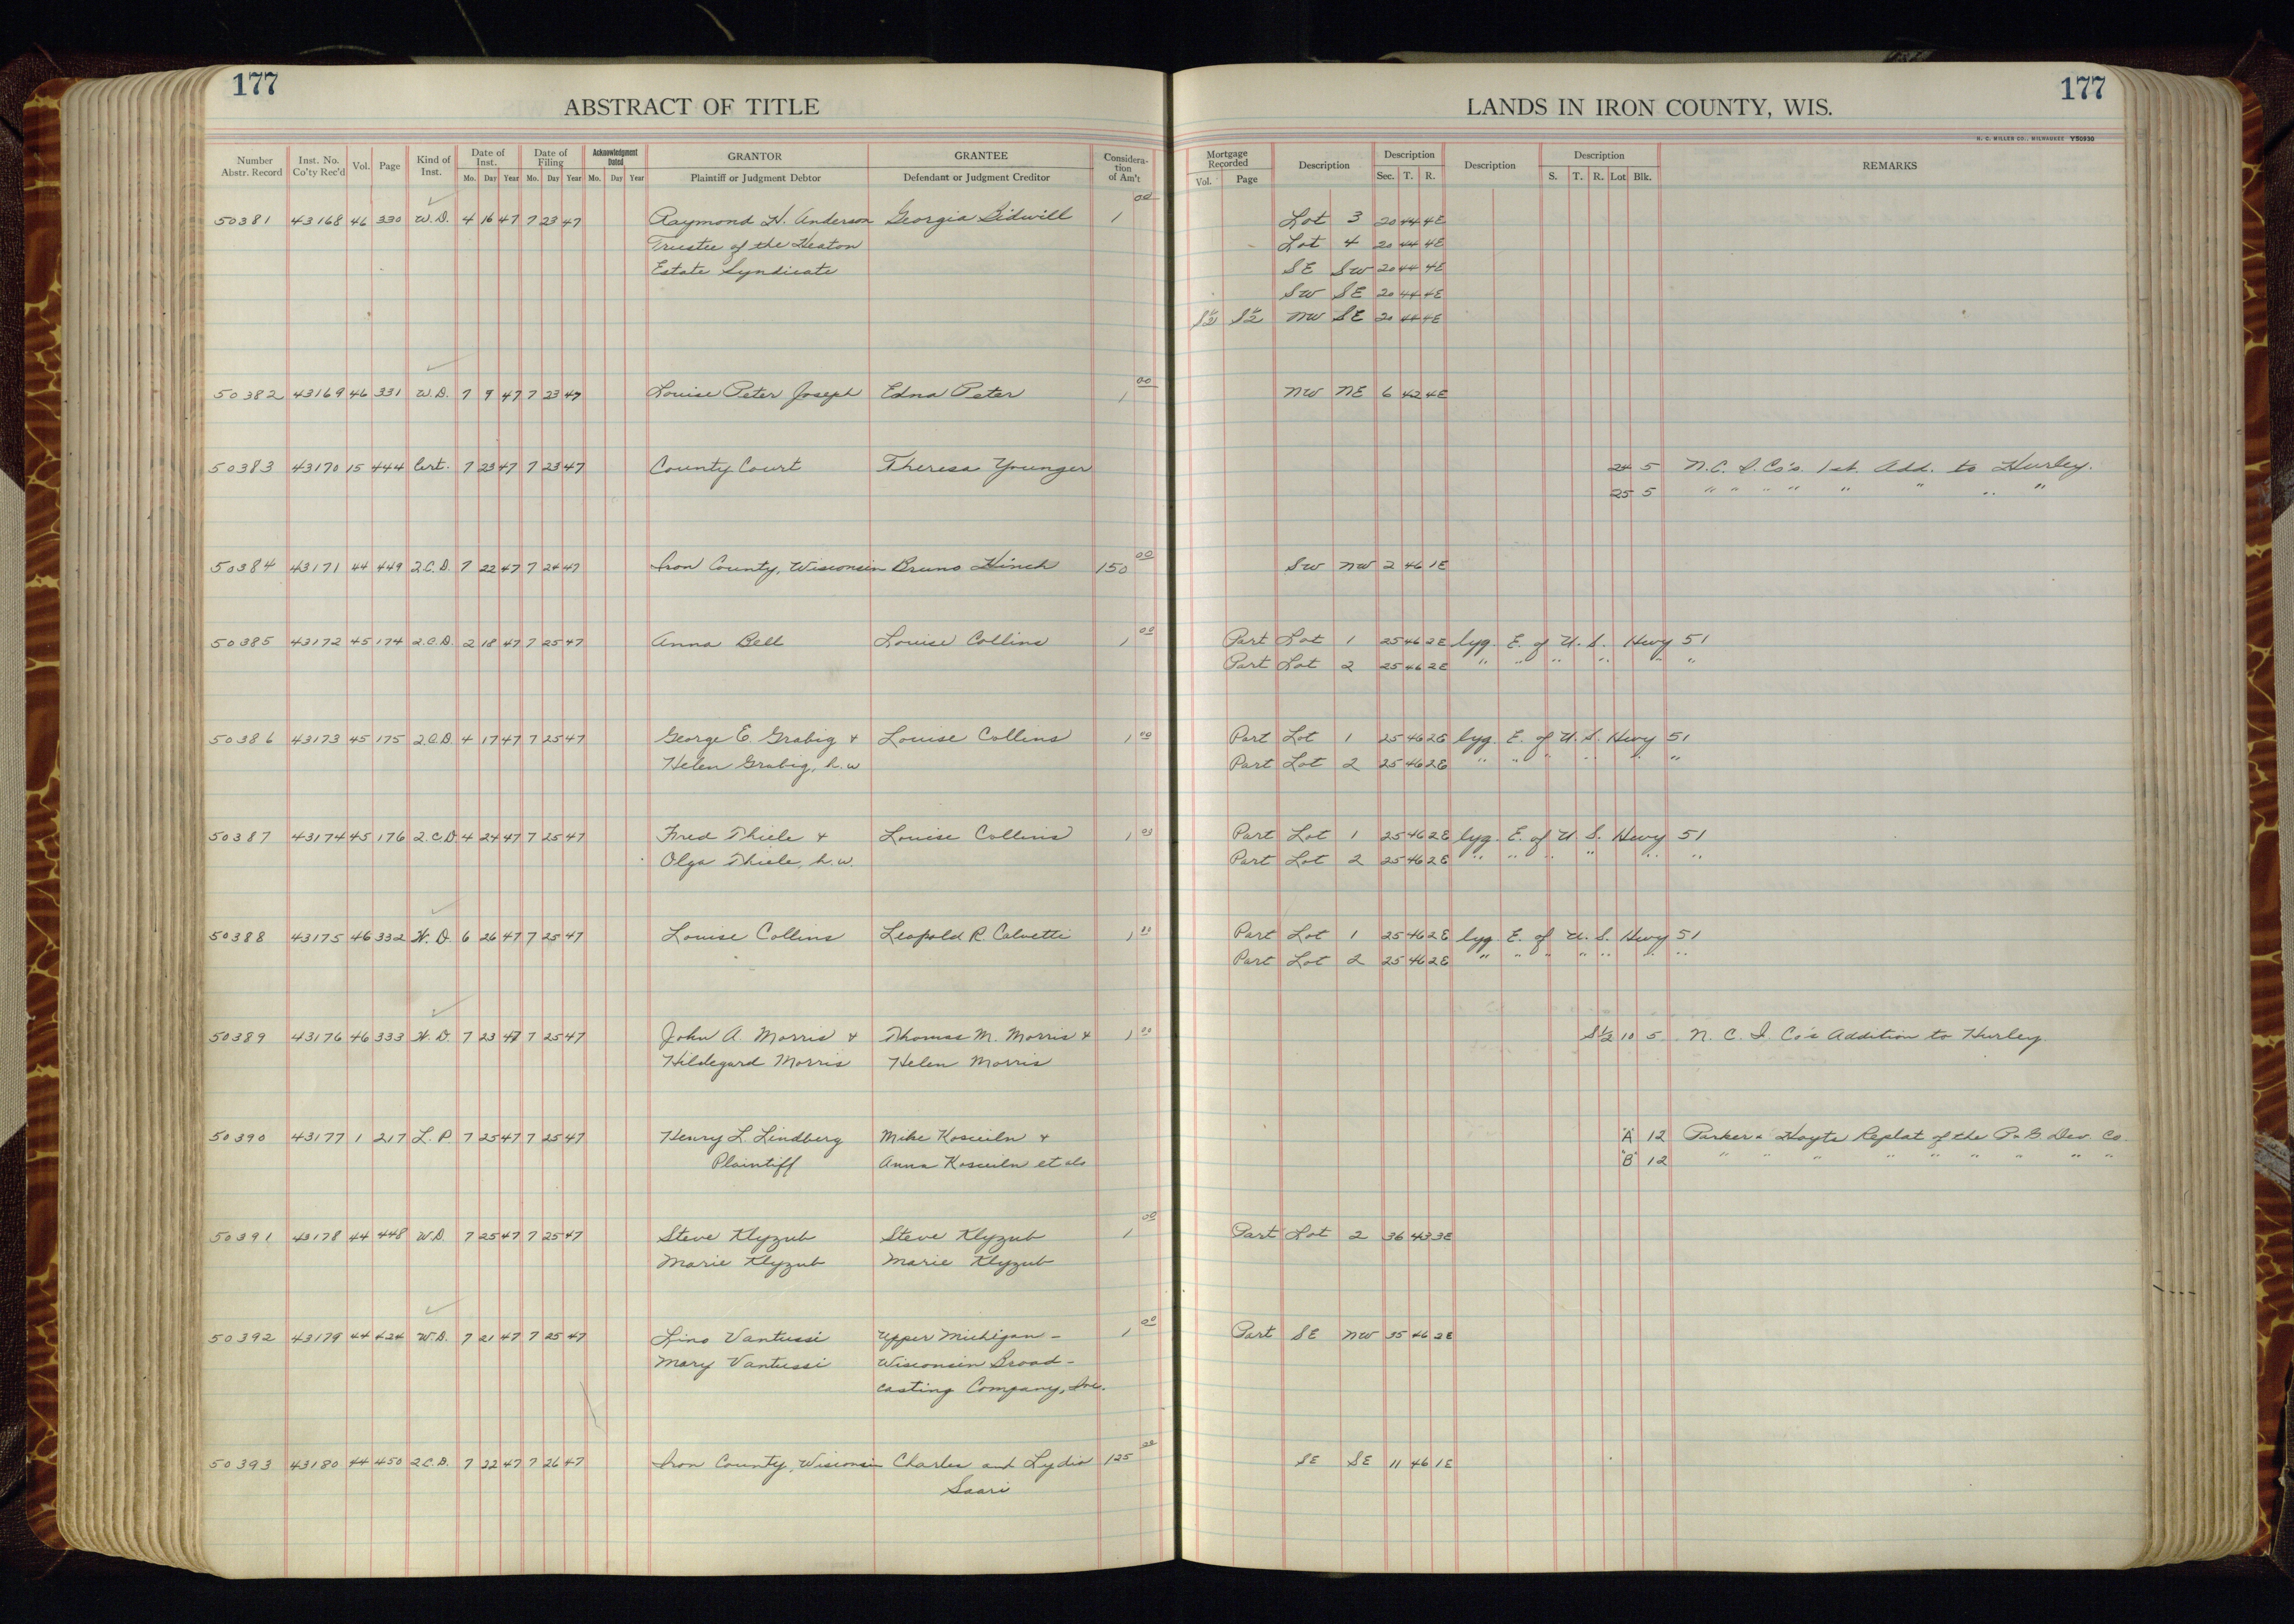 177
177
ABSTRACT OF TITLE
LANDS IN IRON COUNTY, WIS.
H. C. MILLER CO., MILWAUKEE Y50930
Number Abstr. Record | Inst. No. Co'ty Rec'd | Vol. | Page | Kind of Inst. | Date of Inst. Mo. Day Year | Date of Filing Mo. Day Year | Acknowledgment Dated Mo. Day Year | GRANTOR Plaintiff or Judgment Debtor | GRANTEE Defendant or Judgment Creditor | Consideration of Am't | Mortgage Recorded Vol. Page | Description | Description Sec. T. R. | Description | Description S. T. R. Lot Blk. | REMARKS
50381 43168 46 330 W.D. 4 16 47 7 23 47 Raymond H. Anderson Georgia Bidwill 1 00 Lot 3 20 44 4E
Trustee of the Heaton Lot 4 20 44 4E
Estate Syndicate SE SW 20 44 4E
SW SE 20 44 4E
S½ S½ NW SE 20 44 4E
50382 43169 46 331 W.D. 7 9 47 7 23 47 Louise Peter Joseph Edna Peter 1 00 NW NE 6 42 4E
50383 43170 15 444 Cert. 7 23 47 7 23 47 County Court Theresa Younger 24 5 N.C. I. Co's. 1st. Add. to Hurley.
25 5 " " " " " " " "
50384 43171 44 449 2.C.D. 7 22 47 7 24 47 Iron County, Wisconsin Bruno Hinch 150 00 SW NW 2 46 1E
50385 43172 45 174 2.C.D. 2 18 47 7 25 47 Anna Bell Louise Collins 1 00 Part Lot 1 25 46 2E lyg. E. of U. S. Hwy 51
Part Lot 2 25 46 2E " " " " " "
50386 43173 45 175 2.C.D. 4 17 47 7 25 47 George E. Grabig & Louise Collins 1 00 Part Lot 1 25 46 2E lyg. E. of U. S. Hwy 51
Helen Grabig, h.w Part Lot 2 25 46 2E " " " " " "
50387 43174 45 176 2.C.D. 4 24 47 7 25 47 Fred Thiele & Louise Collins 1 00 Part Lot 1 25 46 2E lyg. E. of U S. Hwy 51
Olga Thiele, h.w. Part Lot 2 25 46 2E " " " " " "
50388 43175 46 332 W.D. 6 26 47 7 25 47 Louise Collins Leopold R. Calvetti 1 00 Part Lot 1 25 46 2E lyg. E. of U. S. Hwy 51
Part Lot 2 25 46 2E " " " " " " "
50389 43176 46 333 W.D. 7 23 47 7 25 47 John A. Morris & Thomas M. Morris & 1 00 S½ 10 5 N. C. I. Co's Addition to Hurley
Hildegard Morris Helen Morris
50390 43177 1 217 L.P. 7 25 47 7 25 47 Henry L. Lindberg Mike & "A" 12 Parker & Hoyts Replat of the P & G Dev. Co.
Plaintiff Anna et als "B" 12 " " " " " " " " "
50391 43178 44 448 W.D. 7 25 47 7 25 47 Steve Klyzub Steve Klyzub 1 00 Part Lot 2 36 43 3E
Marie Klyzub Marie Klyzub
50392 43179 44 424 W.D. 7 21 47 7 25 47 Lino Vantussi Upper Michigan - 1 00 Part SE NW 35 46 2E
Mary Vantussi Wisconsin Broad-
casting Company, Inc.
50393 43180 44 450 2.C.D. 7 22 47 7 26 47 Iron County, Wisconsin Charles and Lydia 125 00 SE SE 11 46 1E
Saari